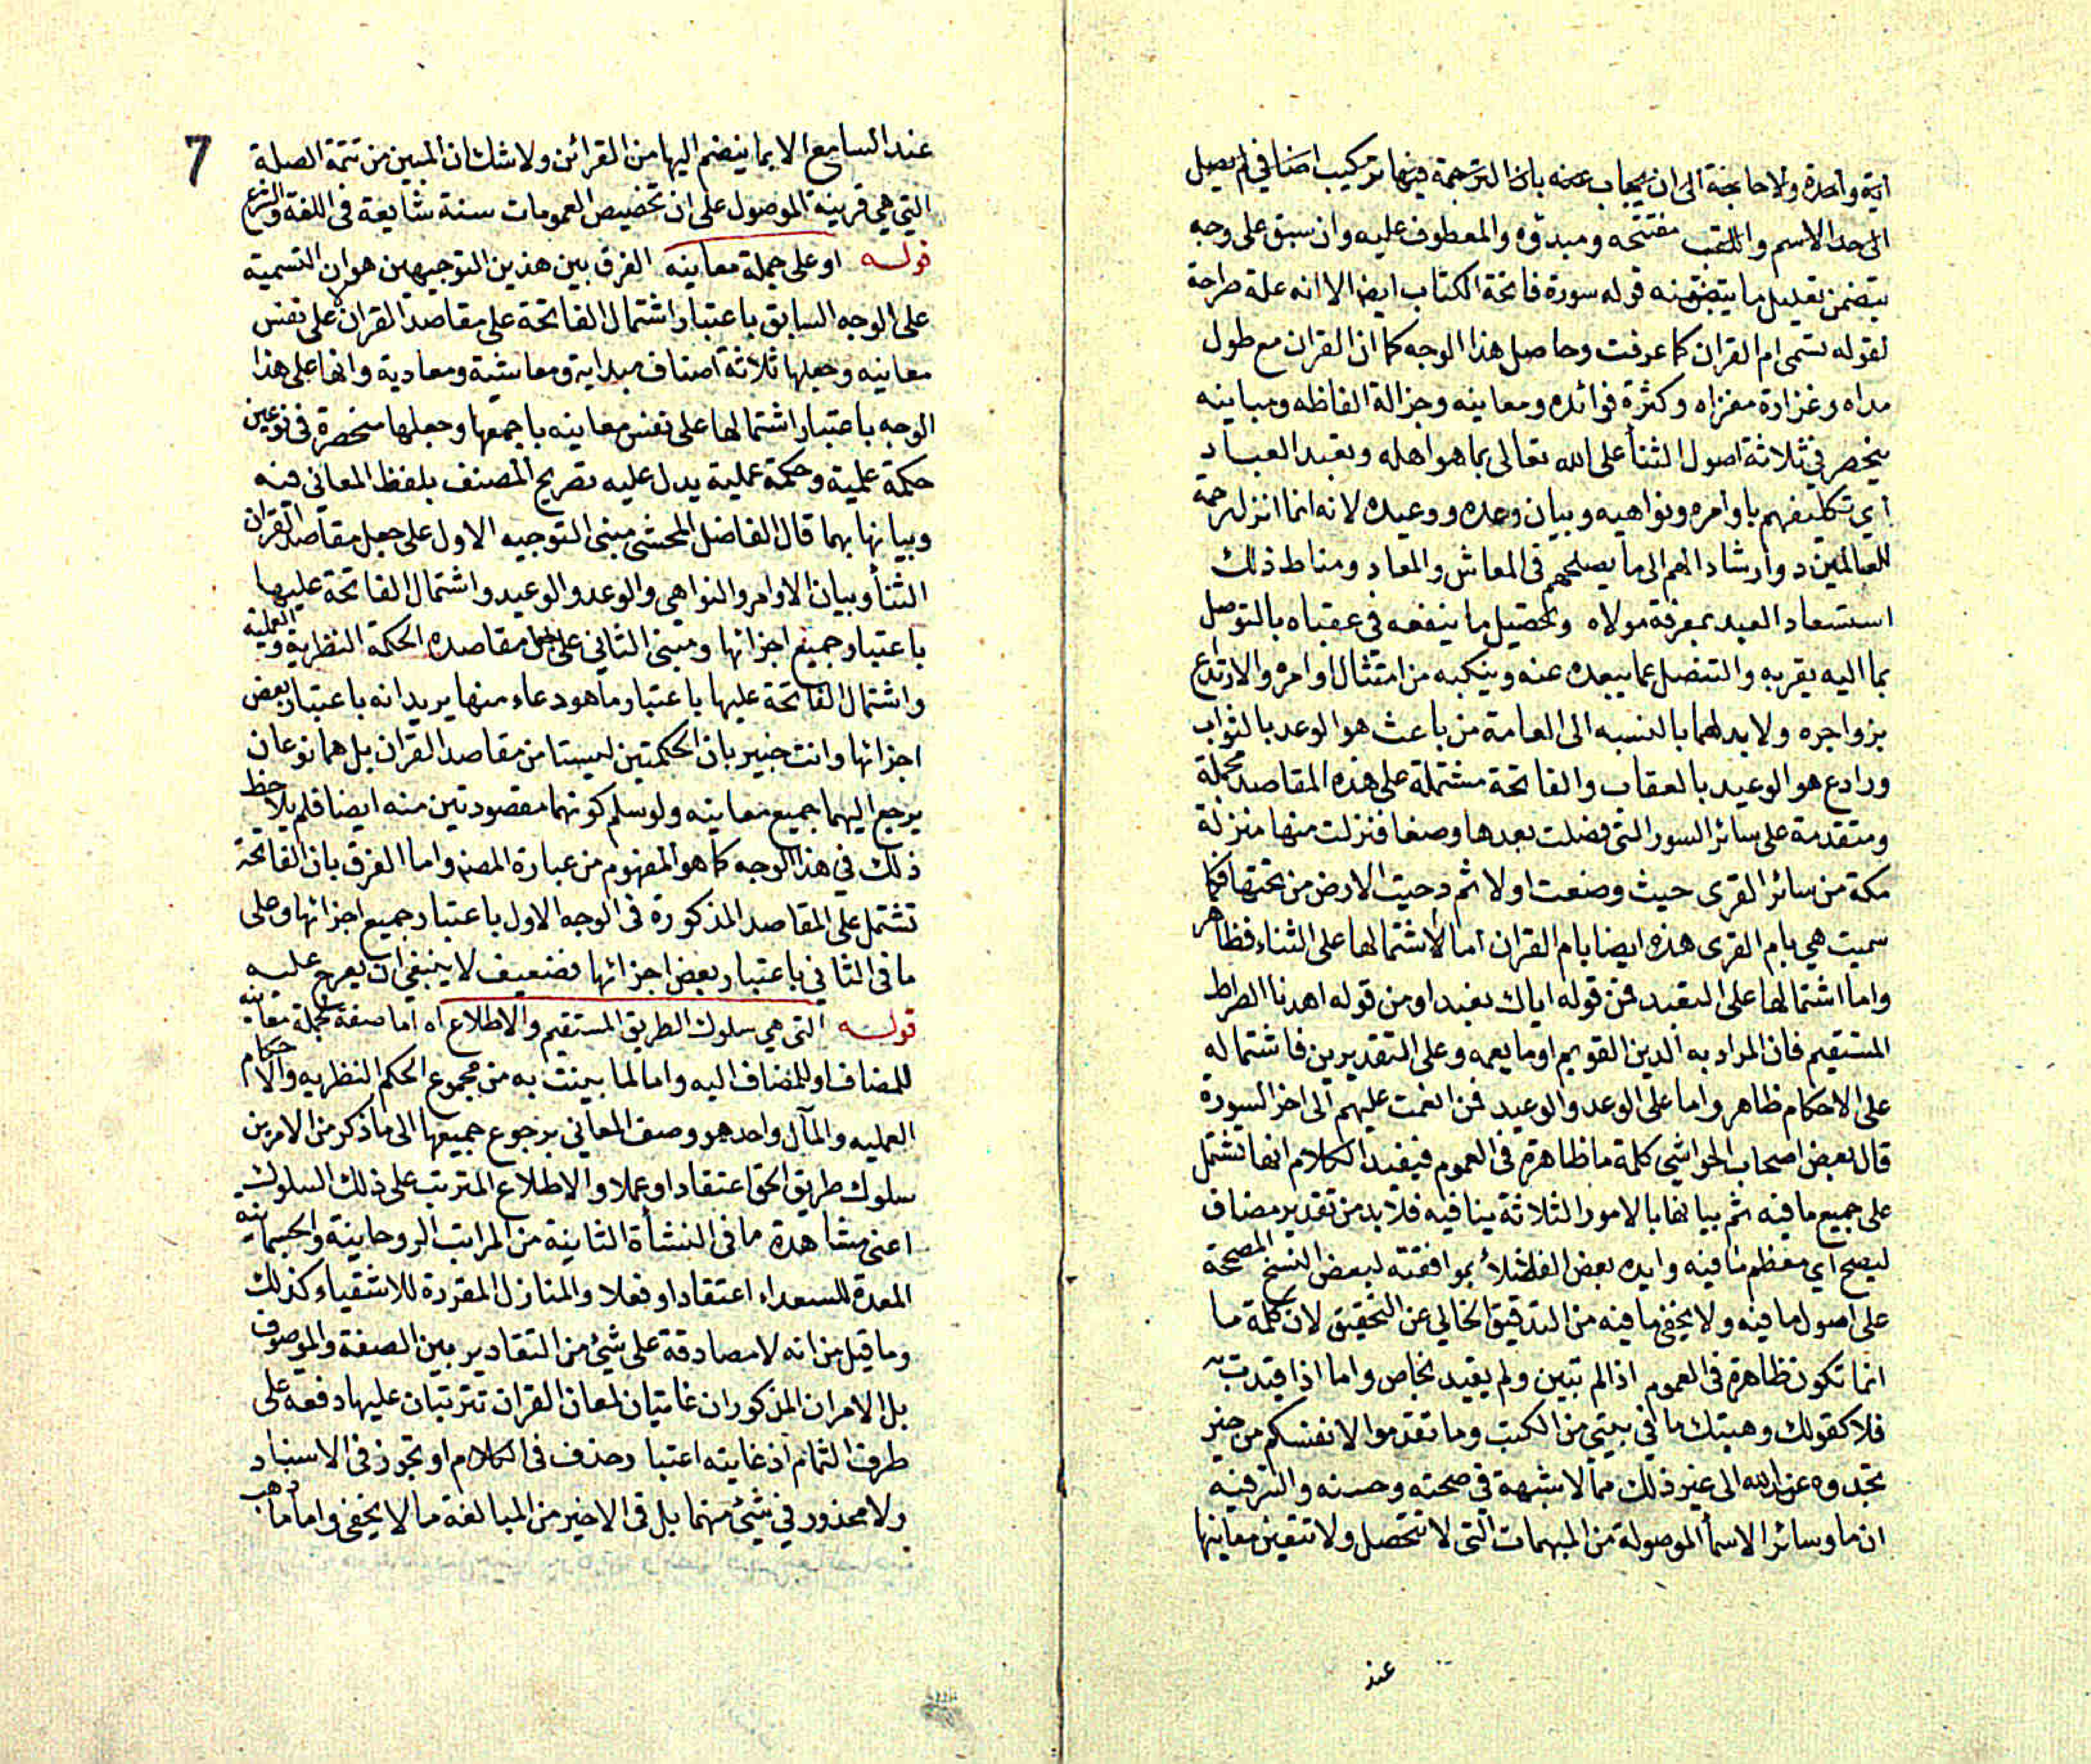 آية واحدة ولا حاجة الى ان يجاب عنه بان الترجمة فيها تركيب اضافي لم يصل
الى حد الاسم واللقب مفتتحه ومبدؤه والمعطوف عليه وان سبق على وجه
يتضمن تعليل ما يتضمنه قوله سورة فاتحة الكتاب ايضا الا انه علة صراحة
لقوله تسمى ام القران كما عرفت وحاصل هذا الوجه كما ان القران مع طول
مداه وغزارة مغزاه وكثرة فوائده ومعانيه وجزالة الفاظه ومبانيه
ينحصر في ثلاثة اصول الثنأ على الله تعالى بما هو اهله وتعبد العباد
اي تكليفهم باوامره ونواهيه وبيان وعده ووعيده لانه انما انزل رحمة
للعالمين وارشادا لهم الى ما يصلحهم فى المعاش والمعاد ومناط ذلك
استسعاد العبد بمعرفة مولاه وتحصيل ما ينفعه في عقباه بالتوصل
بما اليه يقربه والتنصل عما يبعده عنه وينكبه من امتثال اوامره والارتداع
بزواجره ولا بد لهما بالنسبه الى العامة من باعث هو الوعد بالثواب
ورادع هو الوعيد بالعقاب والفاتحة مشتملة على هذه المقاصد مجملة
ومتقدمة على سائر السور التى فصلت بعدها وصفا فنزلت منها منزلة
مكة من سائر القرى حيث وضعت اولا ثم دحيت الارض من تحتها فكما
سميت هي بام القرى هذه ايضا بام القران اما لاشتمالها على الثناء فظاهر
واما اشتمالها على التعبد فمن قوله اياك نعبد او من قوله اهدنا الصراط
المستقيم فان المراد به الدين القويم او ما يعمه وعلى التقديرين فاشتماله
على الاحكام ظاهر واما على الوعد والوعيد فمن انعمت عليهم الى اخر السورة
قال بعض اصحاب الحواشي كلمة ما ظاهرة فى العموم فيفيد الكلام انها تشتمل
على جميع ما فيه ثم بيانها بالامور الثلاثة ينافيه فلا بد من تقدير مضاف
ليصح اي معظم ما فيه وايده بعض الفضلأ بموافقته لبعض النسخ المصححة
على اصول ما فيه ولا يخفى ما فيه من التدقيق الخالي عن التحقيق لان كلمة ما
انما تكون ظاهرة فى العموم اذا لم تبين ولم يقيد بخاص واما اذا قيدت به
فلا كقولك وهبتك ما في بيتي من الكتب وما تقدموا لانفسكم من خير
تجدوه عند الله الى غير ذلك مما لا شبهة في صحته وحسنه والسر فيه
ان ما وسائر الاسمأ الموصولة من المبهمات التى لا تتحصل ولا تتعين معانيها
عند
7
عند السامع الا بما ينضم اليها من القرائن ولا شك ان المبين من تتمة الصلة
التي هي قرينة الموصول على ان تخصيص العمومات سنة شايعة فى اللغة والشرع
قوله او على جملة معانيه الفرق بين هذين التوجيهين هو ان التسمية
على الوجه السابق باعتبار اشتمال الفاتحة على مقاصد القران لا على نفس
معانيه وجعلها ثلاثة اصناف مبدايه ومعاشية ومعادية وانها على هذا
الوجه باعتبار اشتمالها على نفس معانيه باجمعها وجعلها منحصرة فى نوعين
حكمة علمية وحكمة عملية يدل عليه تصريح المصنف بلفظ المعاني فيه
وبيانها بهما قال الفاضل المحشي مبنى التوجيه الاول على جعل مقاصد القران
الثنأ وبيان الاوامر والنواهي والوعد والوعيد واشتمال الفاتحة عليها
باعتبار جميع اجزائها ومبنى الثاني على جعل مقاصده الحكمة النظرية والعملية
واشتمال الفاتحة عليها باعتبار ما هو دعاء منها يريد انه باعتبار بعض
اجزائها وانت خبير بان الحكمتين ليستا من مقاصد القران بل هما نوعان
يرجع اليهما جميع معانيه ولو سلم كونهما مقصودتين منه ايضا فلم يلاحظ
ذلك في هذا الوجه كما هو المفهوم من عبارة المصنف واما الفرق بان الفاتحة
تشتمل على المقاصد المذكورة فى الوجه الاول باعتبار جميع اجزائها وعلى
ما فى الثاني باعتبار بعض اجزائها فضعيف لا ينبغي ان يعرج عليه
قوله التى هي سلوك الطريق المستقيم والاطلاع اه اما صفة لجملة معانيه
للمضاف او للمضاف اليه واما لما بينت به من مجموع الحكم النظريه والاحكام
العمليه والمآل واحد هو وصف المعاني برجوع جميعها الى ما ذكر من الامرين
سلوك طريق الحق اعتقادا وعملا والاطلاع المترتب على ذلك السلوك
اعنى مشاهدة ما فى النشأة الثانية من المراتب الروحانية والجسمانيه
المعدة للسعداء اعتقادا وفعلا والمنازل المقررة للاشقياء كذلك
وما قيل من انه لا مصادقة على شئ من التقادير بين الصفة والموصوف
بل الامران المذكوران غايتان لمعان القران تترتبان عليها دفعه على
طرف الثمام اذ غايته اعتبار حذف فى الكلام او تجوز فى الاسناد
ولا محذور في شئ منهما بل فى الاخير من المبالغة ما لا يخفى واما ما ذهب